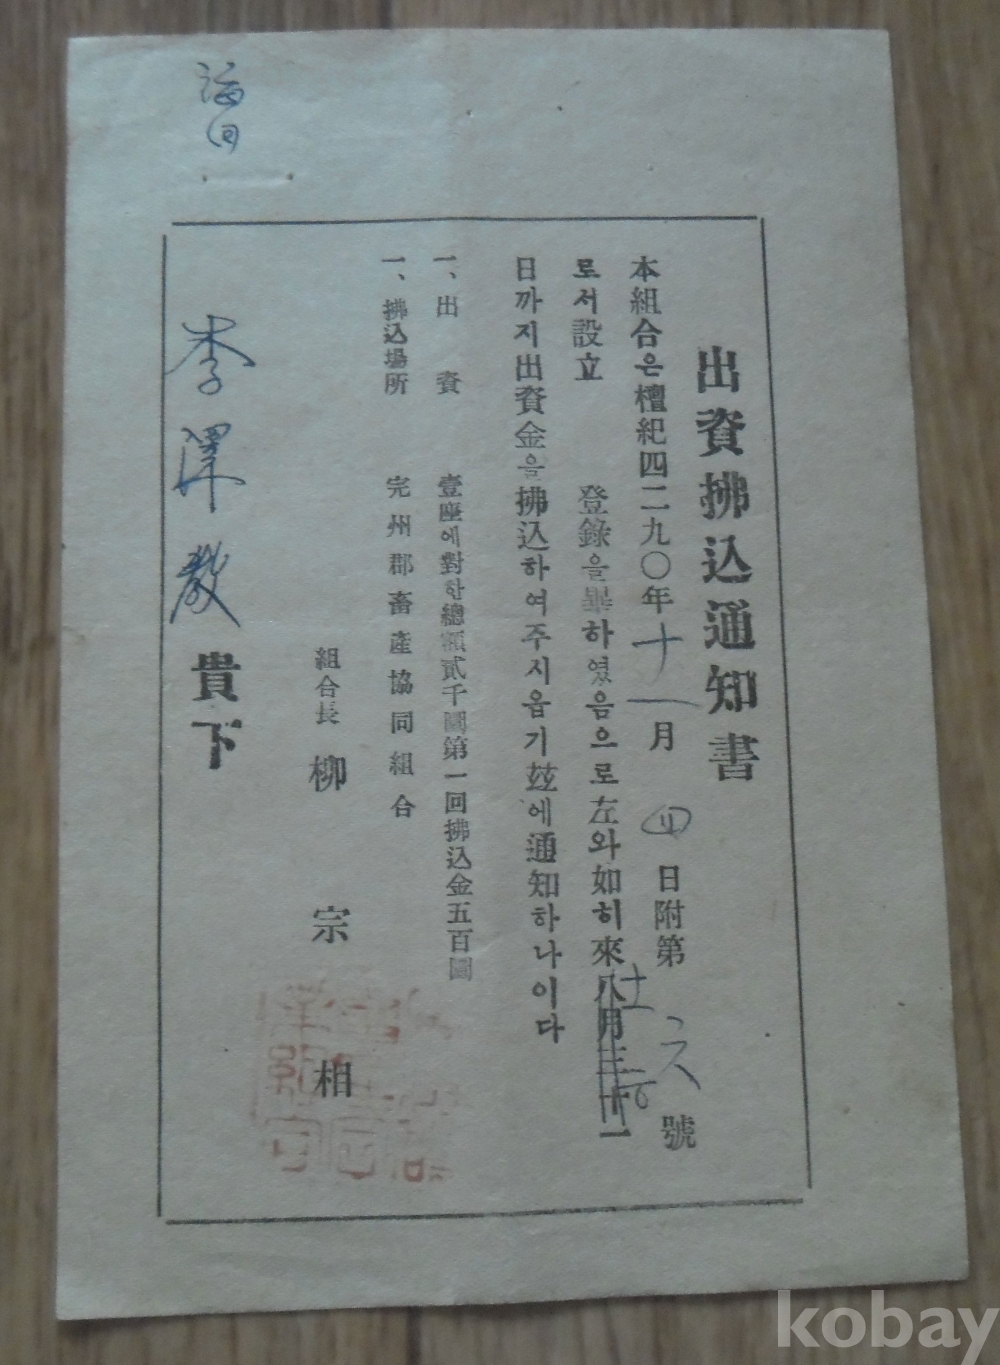 出資拂込通知書
本組合은檀紀四二九〇年十一月 四 日附第 六 號
로서設立 登錄을畢하였음으로左와如히來八月三十一
十二
日까지出資金을拂込하여주시옵기玆에通知하나이다
一、出 資 壹座에對한總額貳千圜第一回拂込金五百圜
一、拂込場所 完州郡畜產協同組合
組合長 柳 宗 相
李澤敎 貴下
kobay